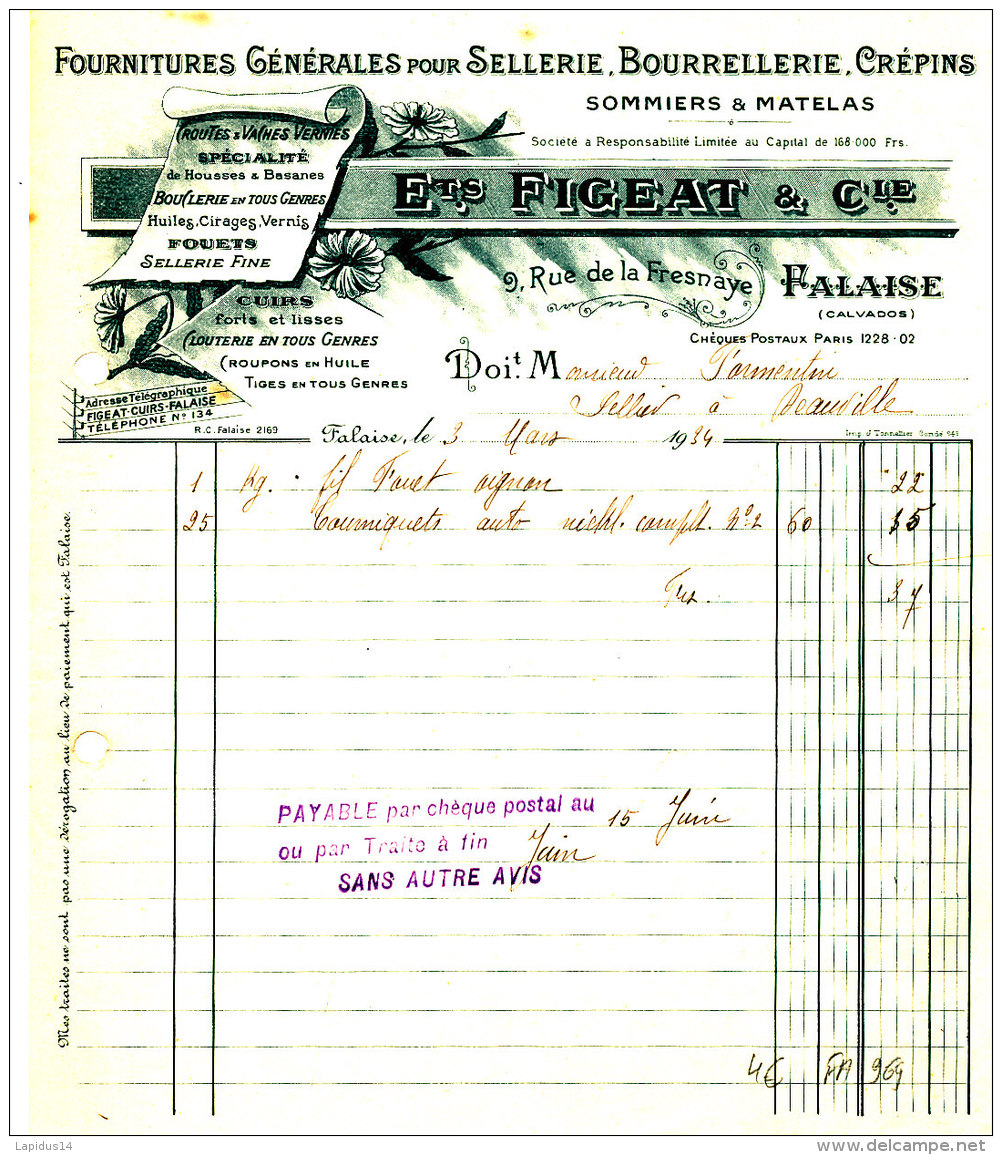 FOURNITURES GÉNÉRALES POUR SELLERIE, BOURRELLERIE, CRÉPINS
SOMMIERS & MATELAS
Société à Responsabilité Limitée au Capital de 168.000 Frs.
CROUTES & VACHES VERNIES
SPÉCIALITÉ
de Housses & Basanes
BOUCLERIE EN TOUS GENRES
Huiles, Cirages, Vernis
FOUETS
SELLERIE FINE
ETS FIGEAT & CIE
9, Rue de la Fresnaye FALAISE
(CALVADOS)
CHÈQUES POSTAUX PARIS 1228-02
CUIRS
forts et lisses
CLOUTERIE EN TOUS GENRES
CROUPONS EN HUILE
TIGES EN TOUS GENRES
Adresse Télégraphique
FIGEAT-CUIRS-FALAISE
TÉLÉPHONE No 134
R.C. Falaise 2169
Doit. M Monsieur Parmentier
Sellier à Deauville
Falaise, le 3 Mars 1934
1 Kg. fil Fouet oignon 22
25 Tourniquets auto nickl. complt. No 2 60 15
Frs. 37
Mes traites ne sont pas une dérogation au lieu de paiement qui est Falaise.
PAYABLE par chèque postal au 15 Juin
ou par Traite à fin Juin
SANS AUTRE AVIS
4€ FA 969
Lapidus14
www.delcampe.net